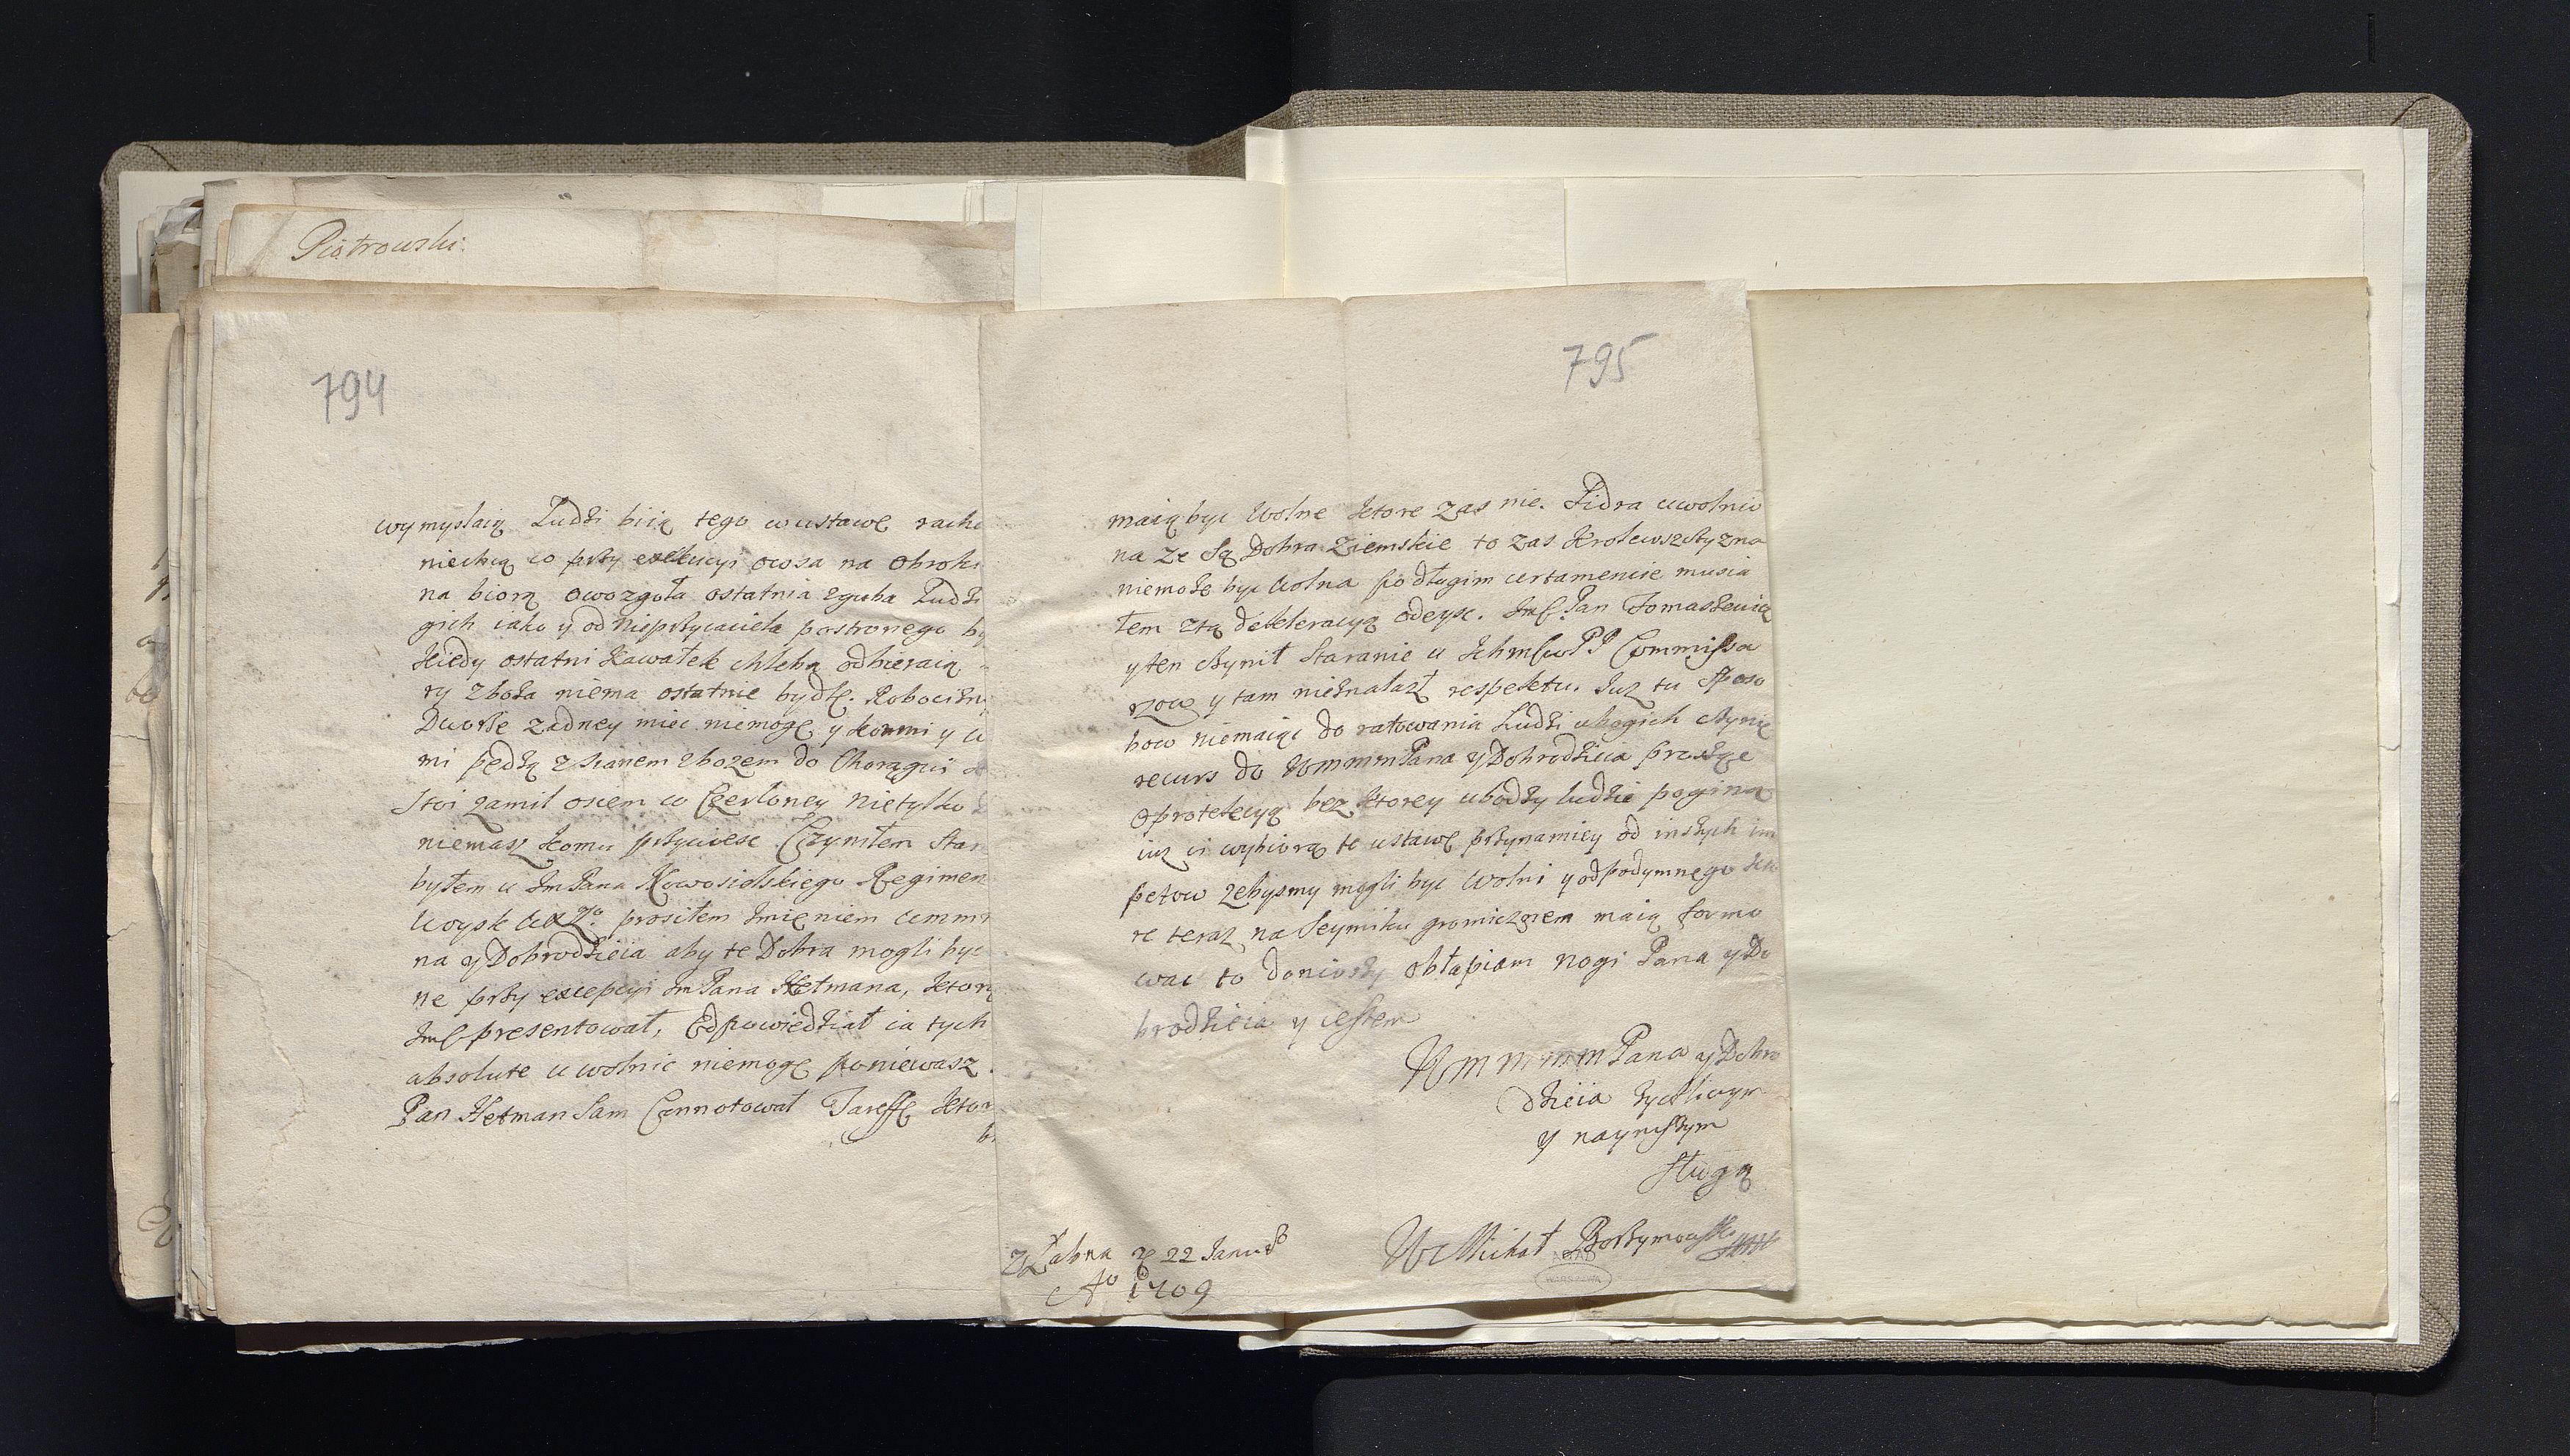 Piotrowski.
794
wymyslaią Ludzi biią tego w ustawę
niechcą co przy exekucyi owsa na Obroki
na biorą owozgoła ostatnia zguba Ludzi
gich iako y od Nieprzyiaciela postronego
Kiedy ostatni Kawałek chleba odbieraią
ry zboża niema ostatnie bydłę. Robocizny
Dworze żadney miec niemogę y konmi y
mi pędzą z sianem zbożem do Chorągwi
Stoi zamil osiem w Czerloney nietylko
niemasz komu przywiesc Czyniłem
byłem u Jm Pana Nowosielskiego Regimen
Woysk prosiłem Jmięniem
na y Dobrodzieia aby te Dobra mogli byc
ne przy excepcyi Jm Pana Hetmana,
Jmć presentował, Odpowiedział ia tych
absolute uwolnic niemogę poniewasz
Pan Hetman Sam Connotował Tareffę
795
maią byc Wolne ktore zas nie. Sidra uwolnio
na ze Są Dobra Ziemskie to zas Krolewszczyzna
niemoże byc Wolna po długim certamencie musia
łem z tą deklaracyą odeysc. Jmć Pan Tomaszewicz
y ten czynił Staranie u Ichmciw PP Commissa
rzow y tam nieznalazł respektu. Iuz tu Sposo
bow niemaiąc do ratowania Ludzi ubogich czynię
recurs do Wmmm Pana y Dobrodzieia proszące
o protekcyą bez ktorey ubodzy ludzie poginą
iuz ci wybiorą te ustawę przynamiey od inszych im
petow zebysmy mogli byc Wolni y od podymnego kto
re teraz na Seymiku gromicznem maią formo
wac to doniozszy obłapiam nogi Pana y Do
brodzieia y iestem
Wmmmm Pana y Dobro
dzieia życzliwym
y nayniszym
Sługą
Michał Borzymowski
z Łabna 22 Januar
Ao 1709
AGAD
WARSZAWA